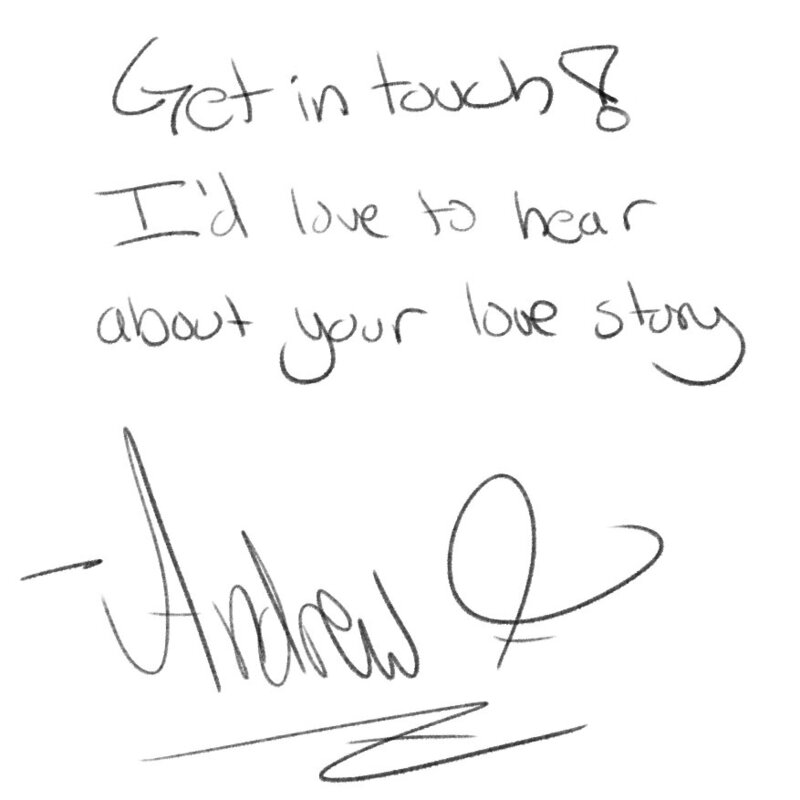 Get in touch!
I'd love to hear
about your love story
- Andrew